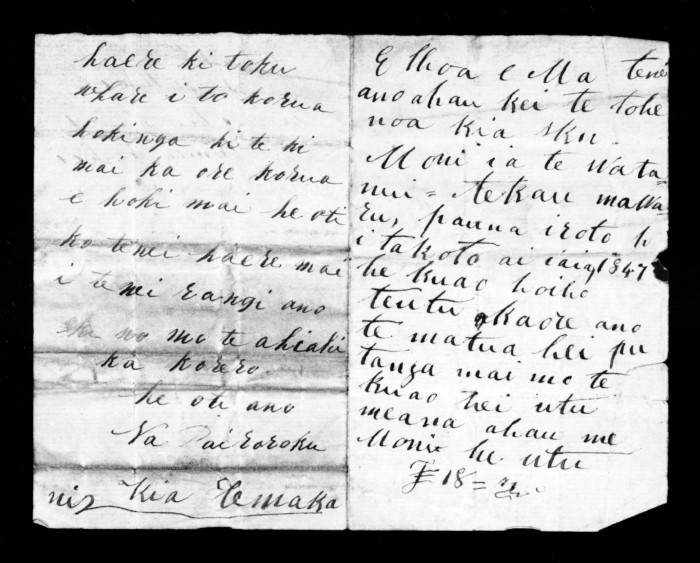 haere ki toku
whare i to korua
hokinga ki te ki
mai ka ore korua
e hoki mai he oti
ko tenei haere mai
i tenei rangi ano
mo te ahiahi
ka korero
he oti ano
Na Pairoroku
Kia Temaka
E Hoa e Ma tenei
ano ahau kei te tohe
noa kia
Moni ia te Wata
nui = tekau mawa
ru, pauna iroto
i takoto ai 1847
he kuao hoiho
tentu kaore ano
te matua hei pu
tanga mai mo te
kuao hei utu
meana ahau me
Moni he utu
£ 18 =